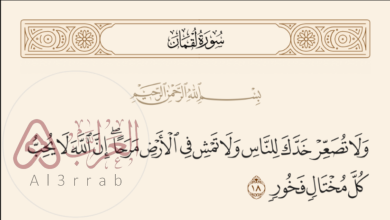 سُورَةُ لُقْمَان
بِسْمِ اللَّهِ الرَّحْمَٰنِ الرَّحِيمِ
وَلَا تُصَعِّرْ خَدَّكَ لِلنَّاسِ وَلَا تَمْشِ فِي الْأَرْضِ مَرَحًا ۖ إِنَّ اللَّهَ لَا يُحِبُّ
كُلَّ مُخْتَالٍ فَخُورٍ ١٨
العراب
Al3rrab